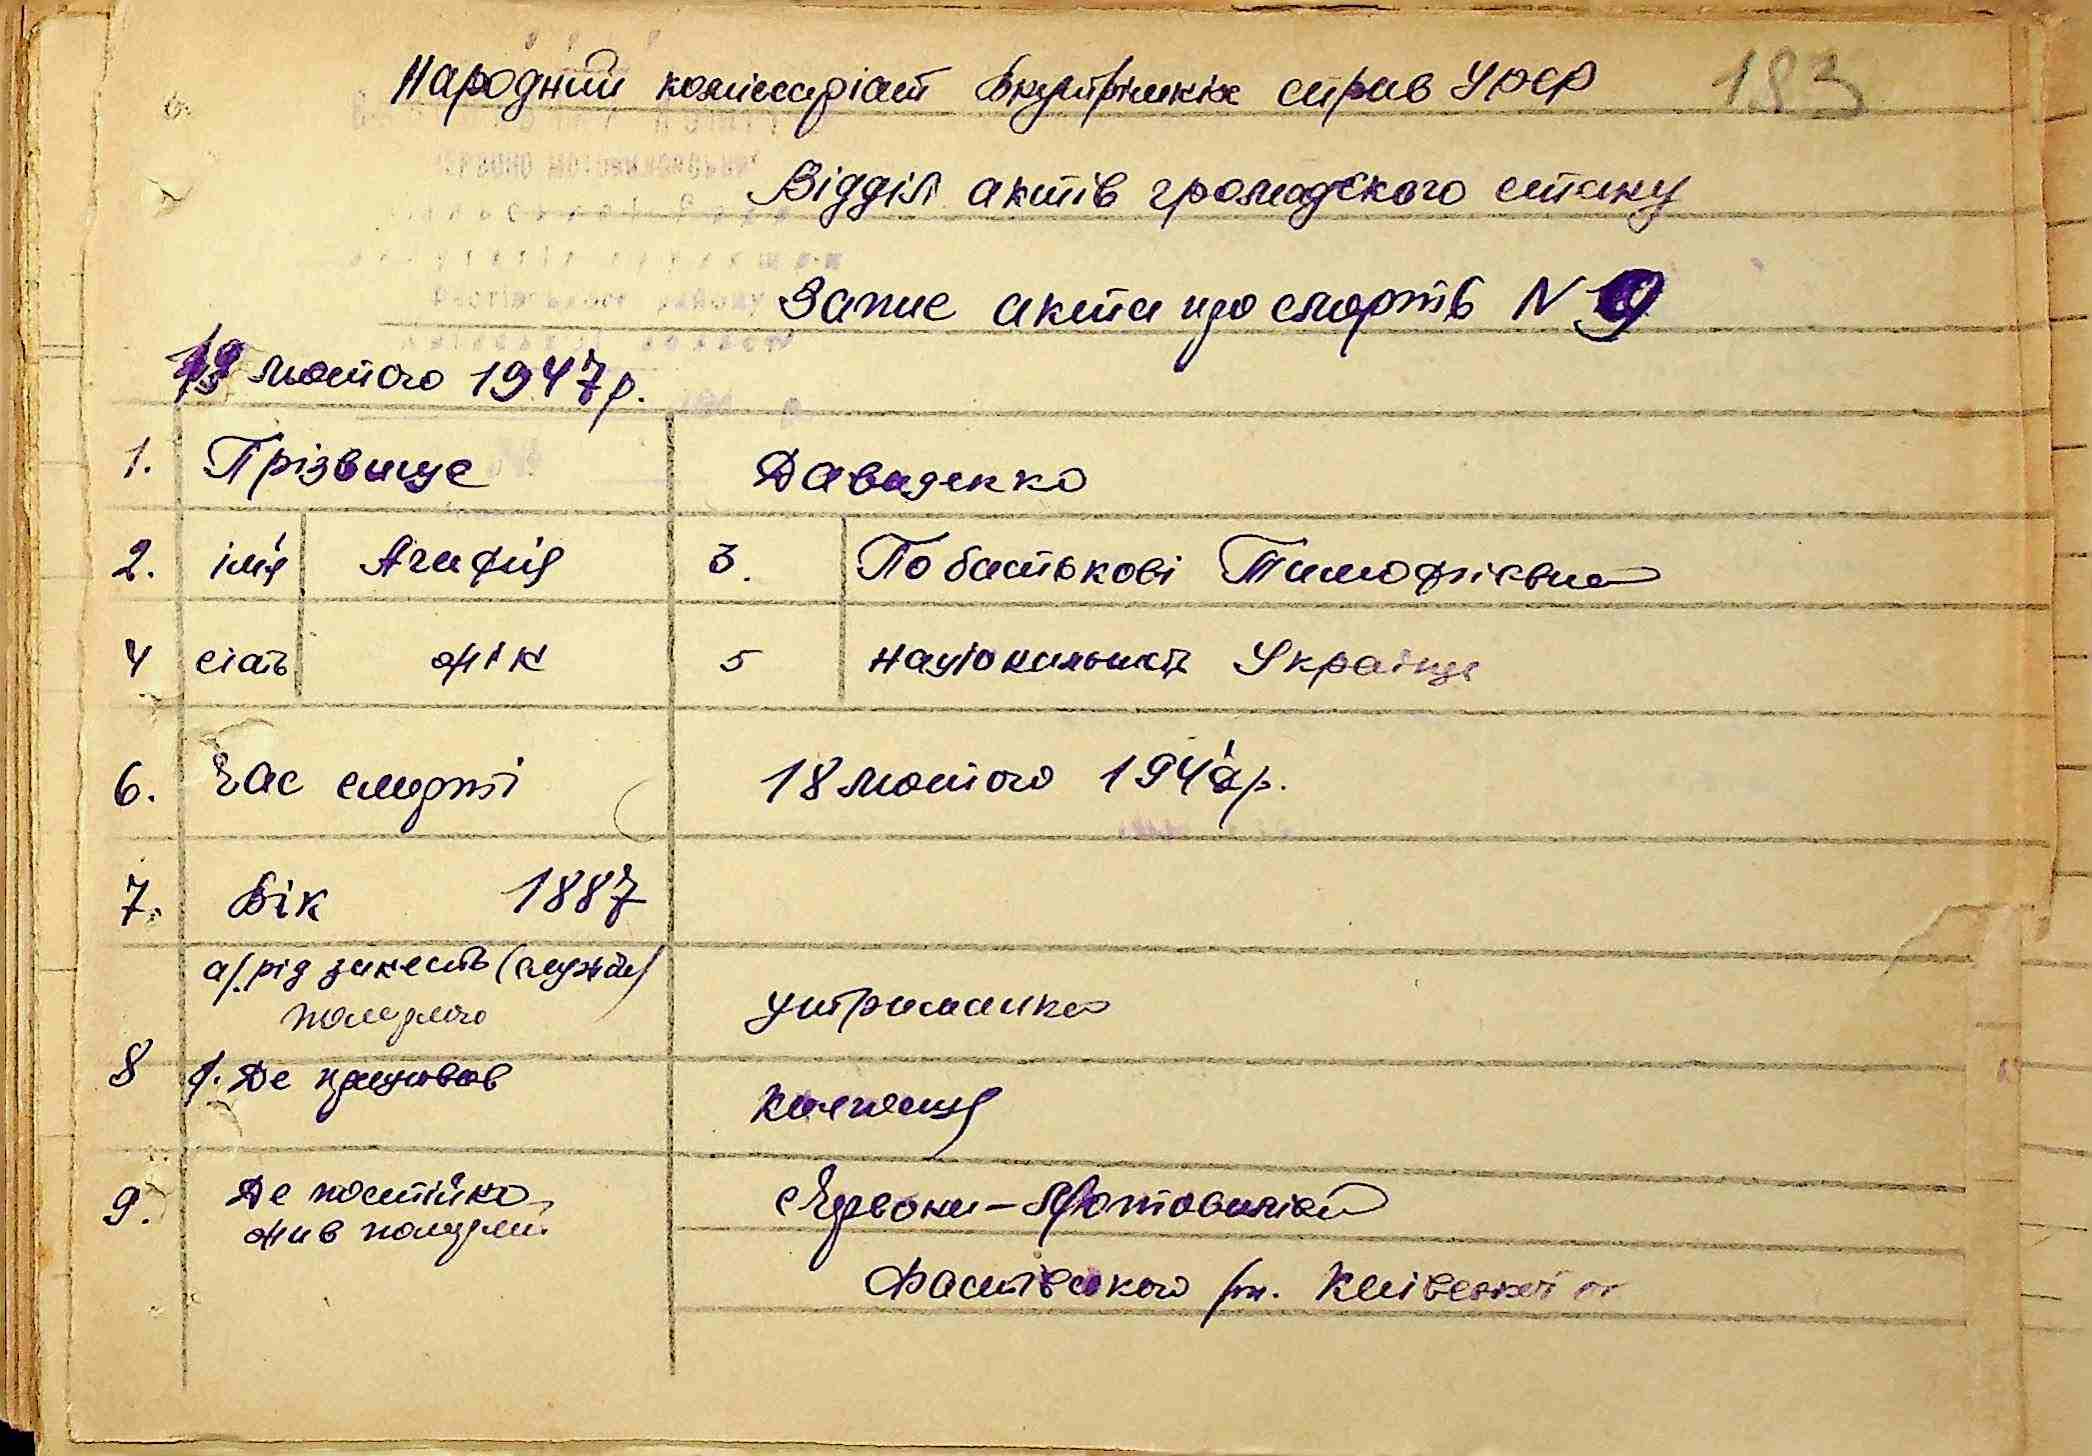 183
Народний комісаріат Внутрішніх справ УРСР
Відділ актів громадського стану
Запис акта про смерть N 9
лютого 1947 р.
1. Прізвище Давиденко
2. ім'я Агафия 3. По батькові Тимофієвна
4 стать жін 5 національність Українц
6. Час смерті 18 лютого 194 р.
7. Вік 1887
а/. рід занять (служби)
утриманка
8 Де працював колгоспу
9. Де постійно Червони-
жив
Фастівського рн. Київської